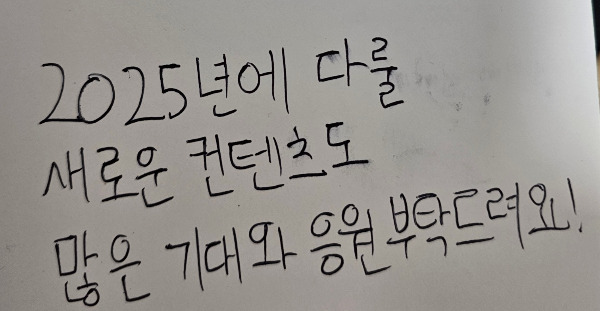 2025년에 다룰
새로운 컨텐츠도
많은 기대와 응원 부탁드려요!